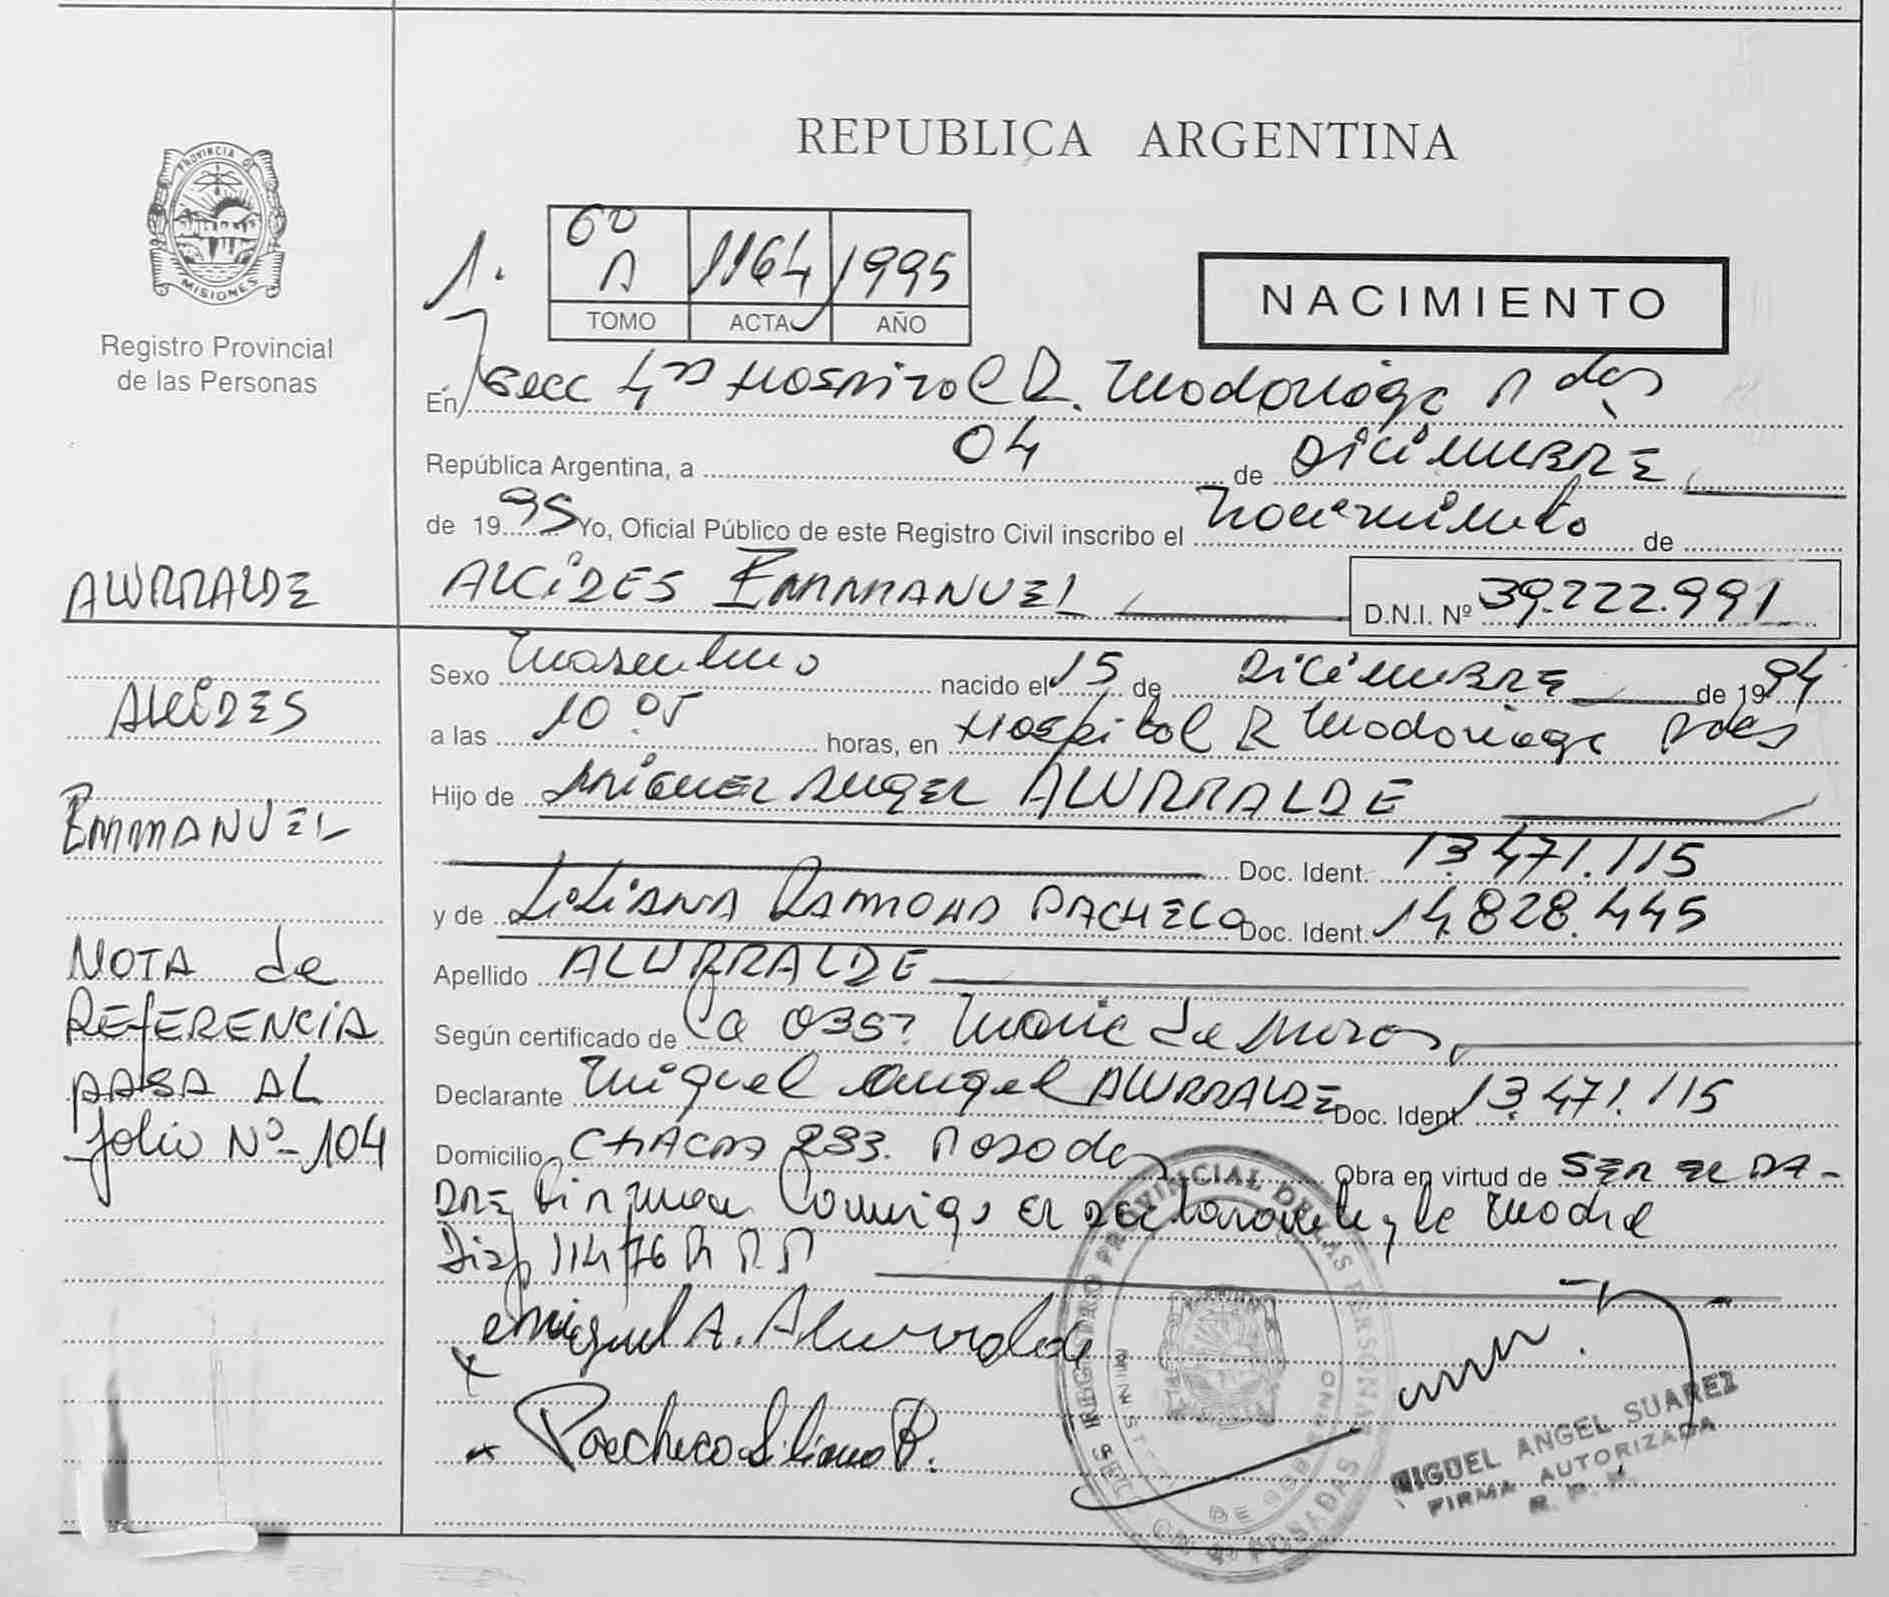 REPUBLICA ARGENTINA
PROVINCIA DE
MISIONES
Registro Provincial
de las Personas
1.
6º
A 1164 1995
TOMO ACTA AÑO
NACIMIENTO
En Secc 4ta Hospital R. Madariaga Pdas
República Argentina, a 04 de DICIEMBRE
de 1995 Yo, Oficial Público de este Registro Civil inscribo el Nacimiento de
ALCIDES EMMANUEL D.N.I. Nº 39.222.991
Sexo Masculino nacido el 15 de DICIEMBRE de 1994
a las 10.05 horas, en Hospital R Madariaga Pdas
Hijo de MIGUEL ANGEL ALURRALDE
Doc. Ident. 13.471.115
y de LILIANA RAMONA PACHECO Doc. Ident. 14.828.445
Apellido ALURRALDE
Según certificado de la OBST Maria de
Declarante Miguel Angel ALURRALDE Doc. Ident. 13.471.115
Domicilio CHACAS 283. Posadas Obra en virtud de SER EL PA-
DRE Firman Conmigo EL Declarante y la Madre
Disp 114/76 R P P
Miguel A. Alurralde
x
x Pacheco Liliana R.
ALURRALDE
ALCIDES
EMMANUEL
NOTA de
REFERENCIA
PASA AL
folio Nº-104
REGISTRO PROVINCIAL DE LAS PERSONAS
MINISTERIO DE GOBIERNO
POSADAS
MIGUEL ANGEL SUAREZ
FIRMA AUTORIZADA
R. P. P.